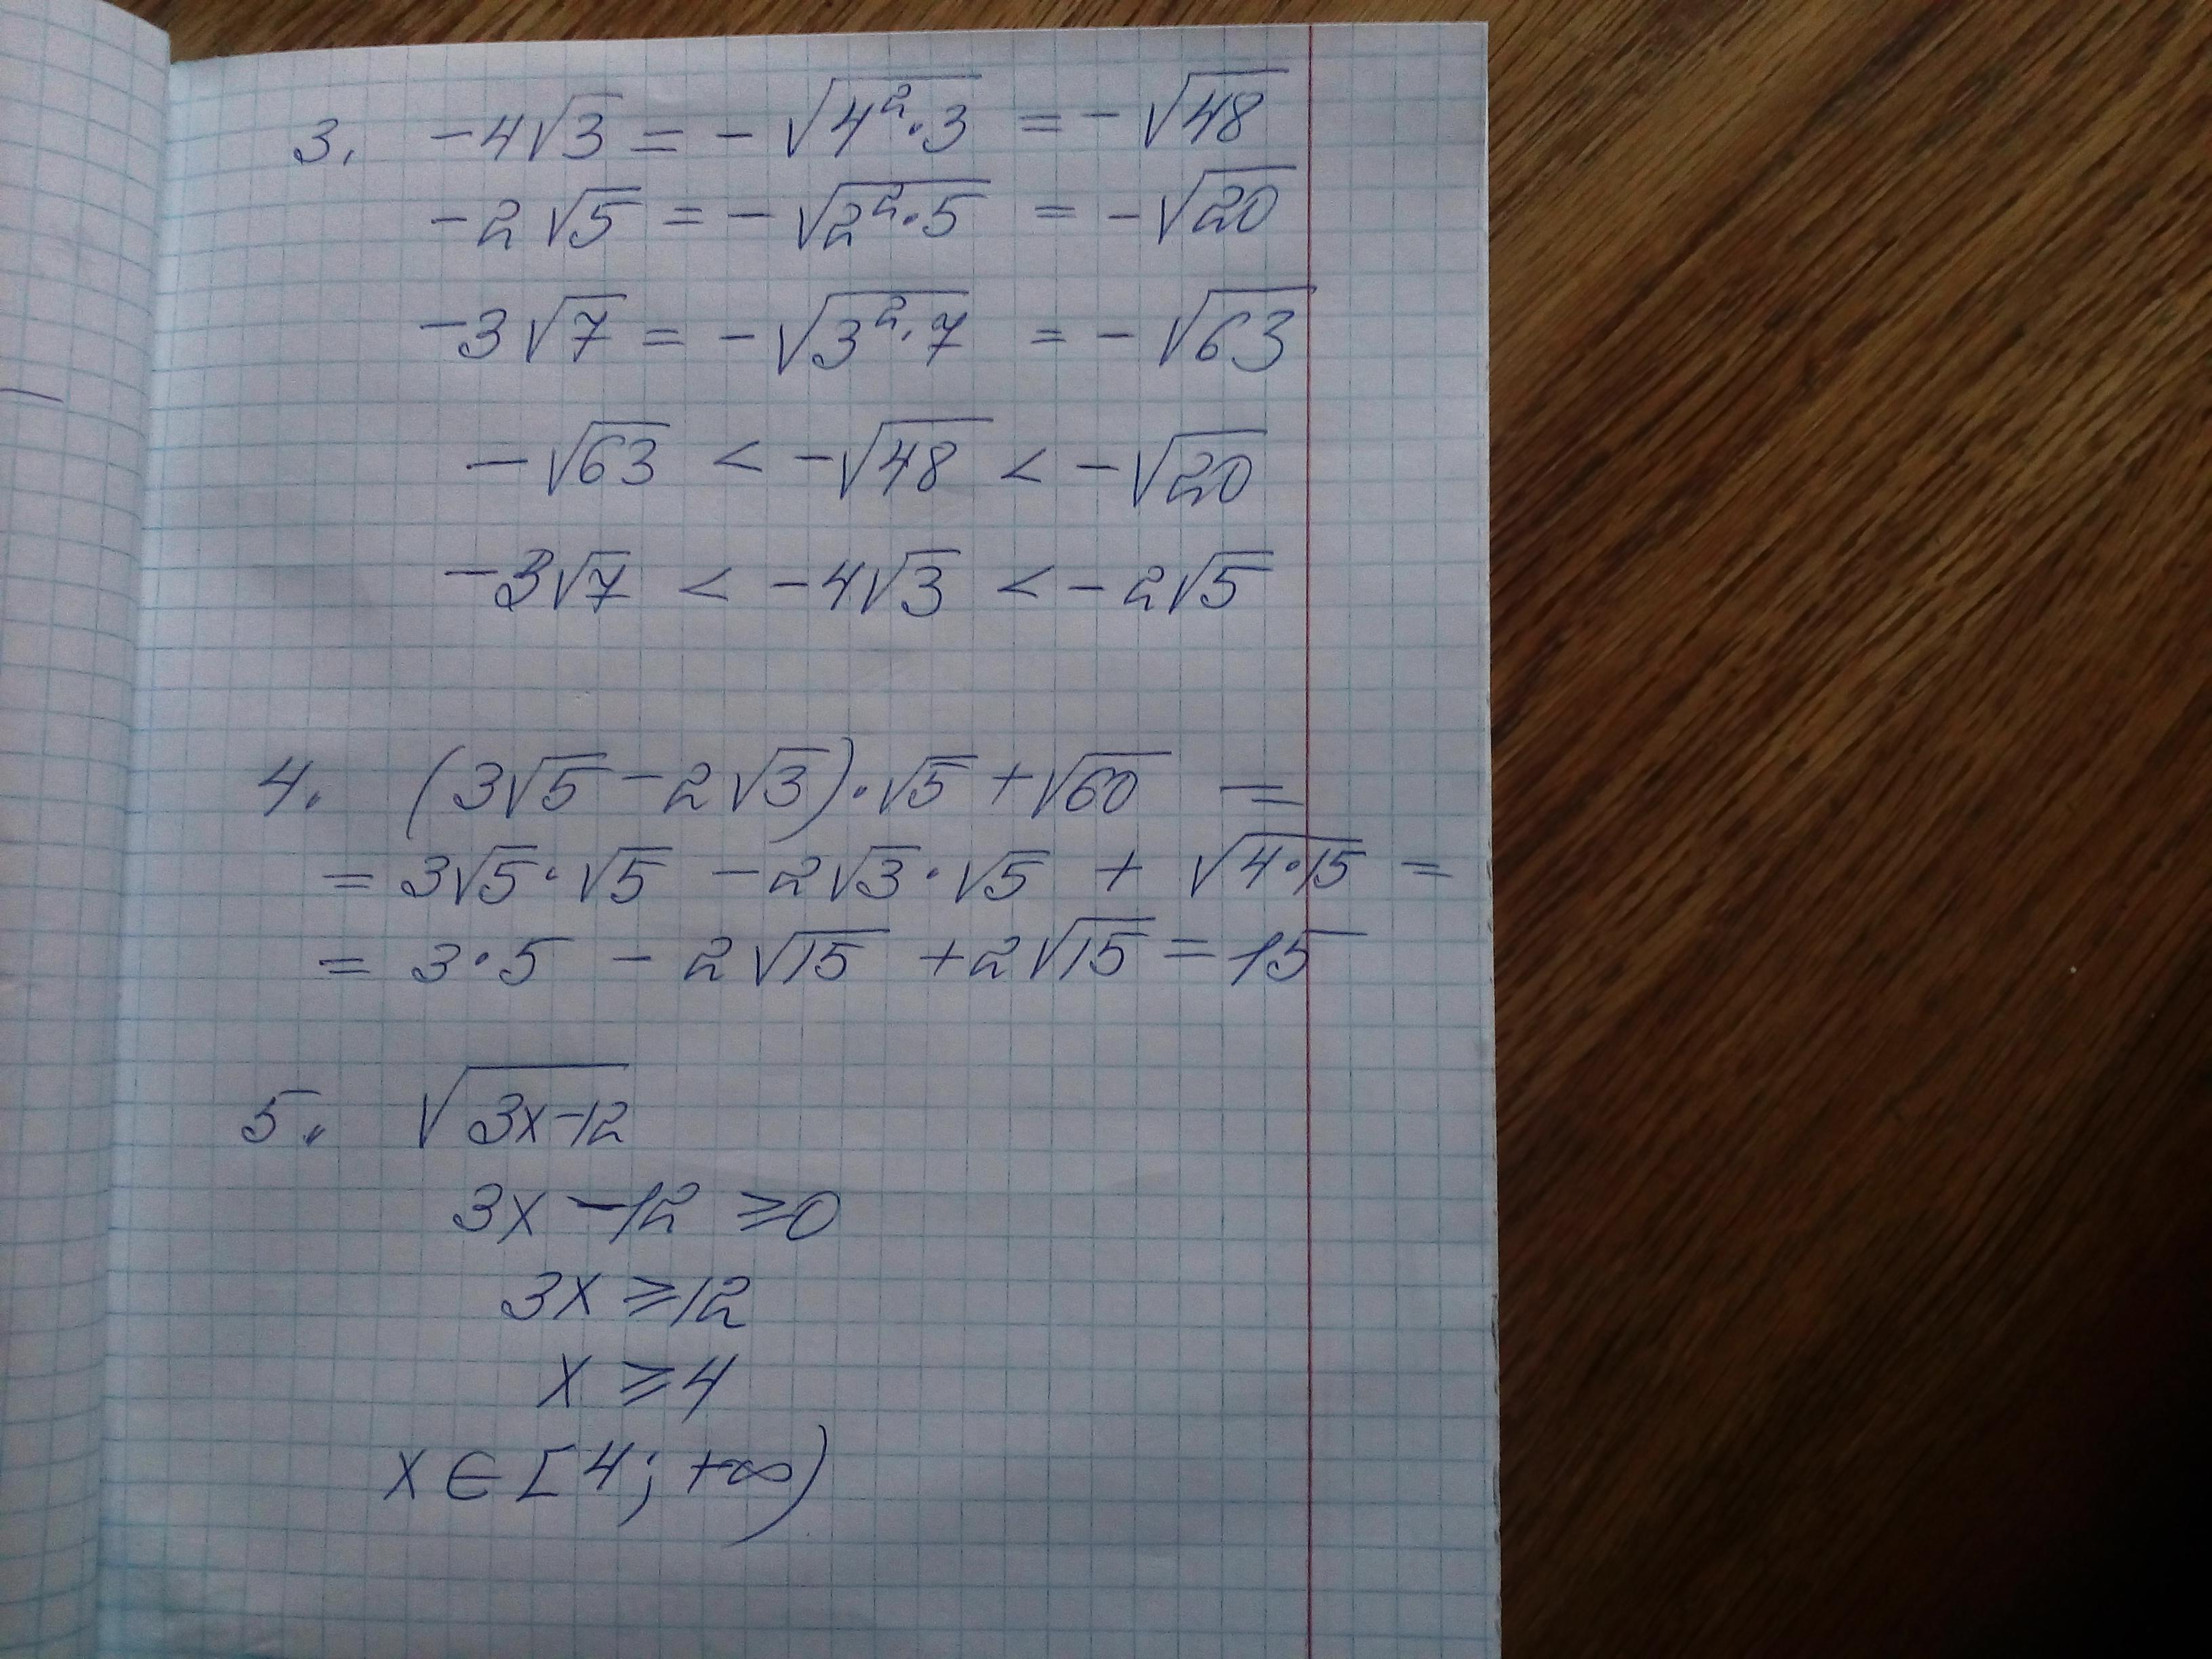 3. -4√3 = -√(4²·3) = -√48
-2√5 = -√(2²·5) = -√20
-3√7 = -√(3²·7) = -√63
-√63 < -√48 < -√20
-3√7 < -4√3 < -2√5
4. (3√5 - 2√3)·√5 + √60 =
= 3√5·√5 - 2√3·√5 + √(4·15) =
= 3·5 - 2√15 + 2√15 = 15
5. √(3x-12)
3x - 12 ⩾ 0
3x ⩾ 12
x ⩾ 4
x ∈ [4; +∞)